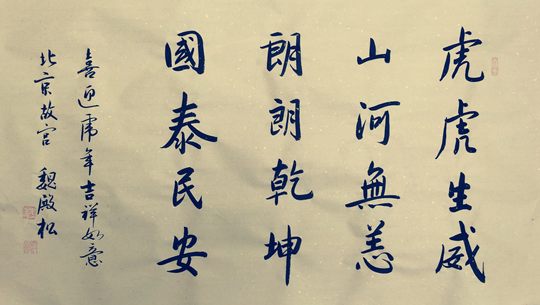 虎虎生威
山河無恙
朗朗乾坤
國泰民安
喜迎虎年吉祥如意
北京故宫 魏殿松